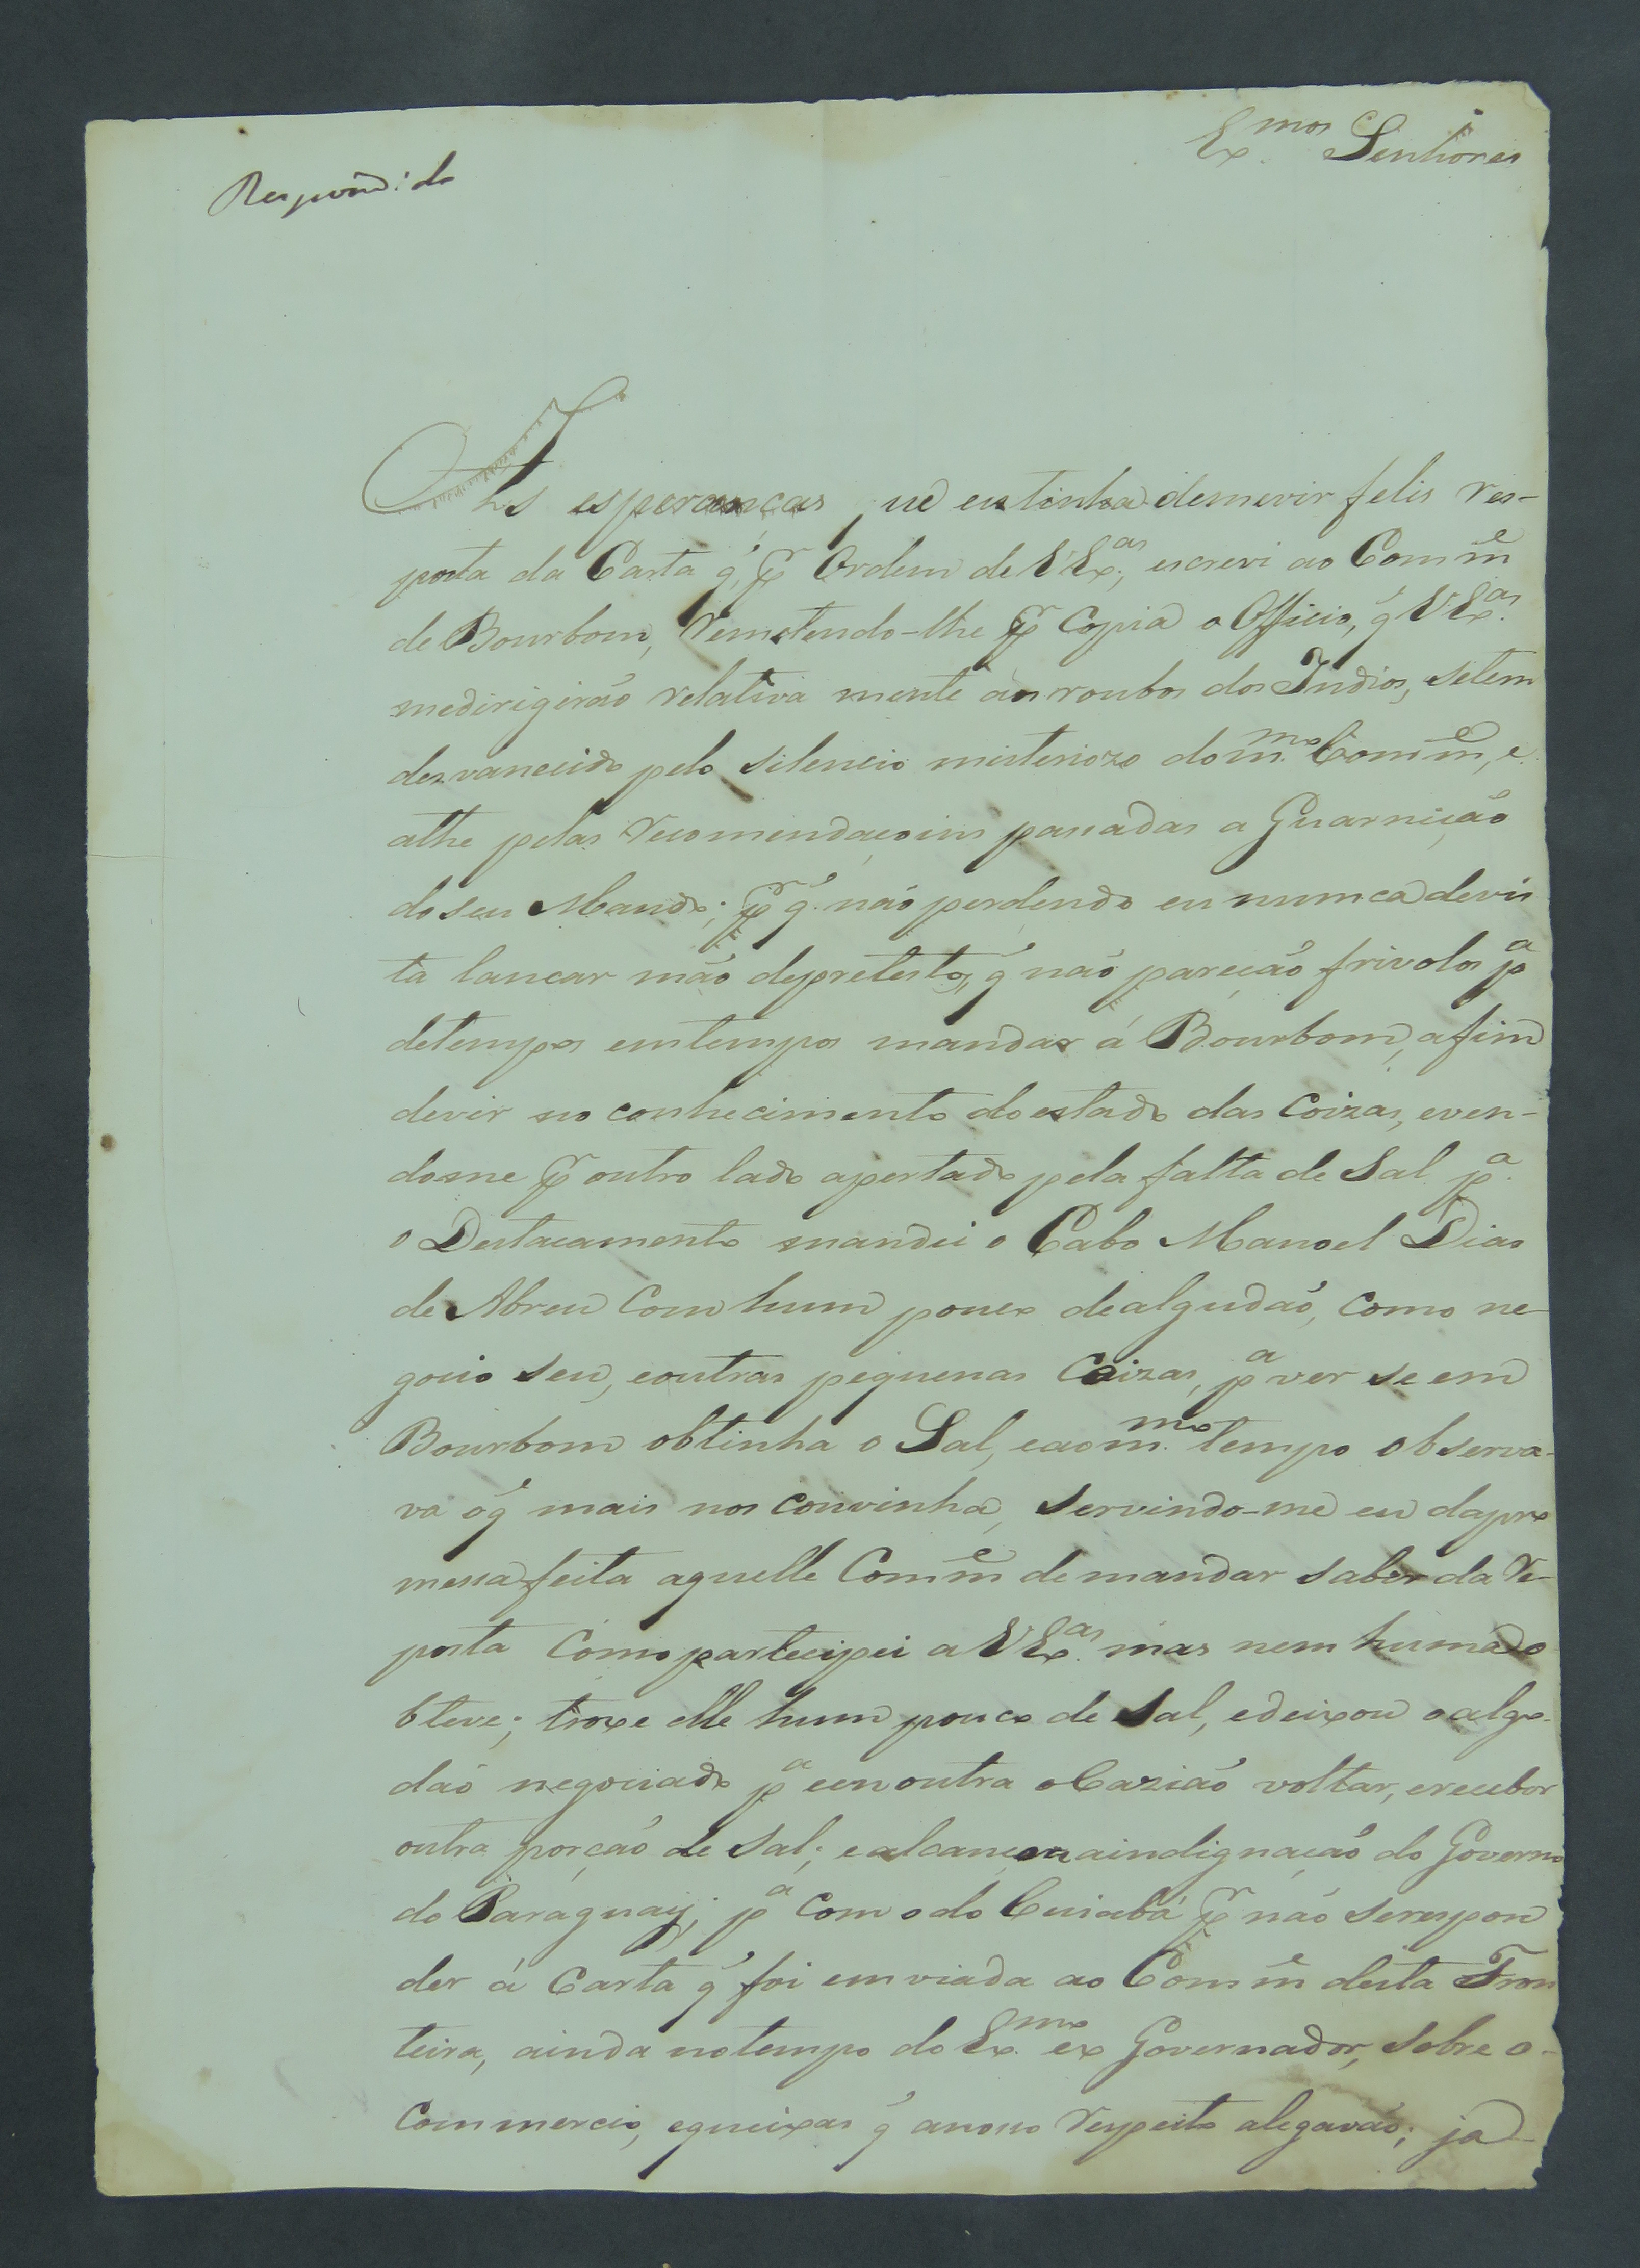 Ex.mos Senhores
Respond:do
As esperanças que eu tinha demevir felis res-
posta da Carta q̃, pr Ordem de VVExas., escrevi ao Comme
de Bourbom, Remetendo-lhe pr Copia o Officio, q̃ VVExas.
medirigirão relativa mente aos roubos dos Indios, setem
desvanecido pelo silencio misteriozo dom.mo Comme, e
athe pelas recomendaçoins passadas a Guarnição
do seu Mando; pr q̃ não perdendo eu numca devis
ta lançar mão depretestos, q̃ não pareção frivolos pa
detempos emtempos mandar á Bourbom, afim
devir no conhecimento do estado das Coizas, even-
dome pr outro lado apertado pela falta de Sal pa.
o Destacamento mandei o Cabo Manoel Dias
de Abreu Com hum pouco dealgudão, Como ne
gocio seu, eoutras pequenas Coizas, pa ver se em
Bourbom obtinha o Sal, eaom.mo tempo observa-
va oq̃ mais nos convinha, servindo-me eu dapro
messa feita aquelle Comme de mandar saber da Re-
posta Como partecipei a VVExas. mas nem humado
bteve; troxe elle hum pouco de Sal, edeixou oalgo-
dão negociado pa em outra oCazião voltar, ereceber
outra porção de Sal; ealcançou aindignação do Governo
do Paraguay, pa Com o do Cuiabá pr não serespon
der á Carta q̃ foi emviada ao Comme desta Fron
teira, ainda notempo do Ex.mo ex Governador, sobre o-
Commercio, equeixas q̃ anosso respeito alegavão; ja